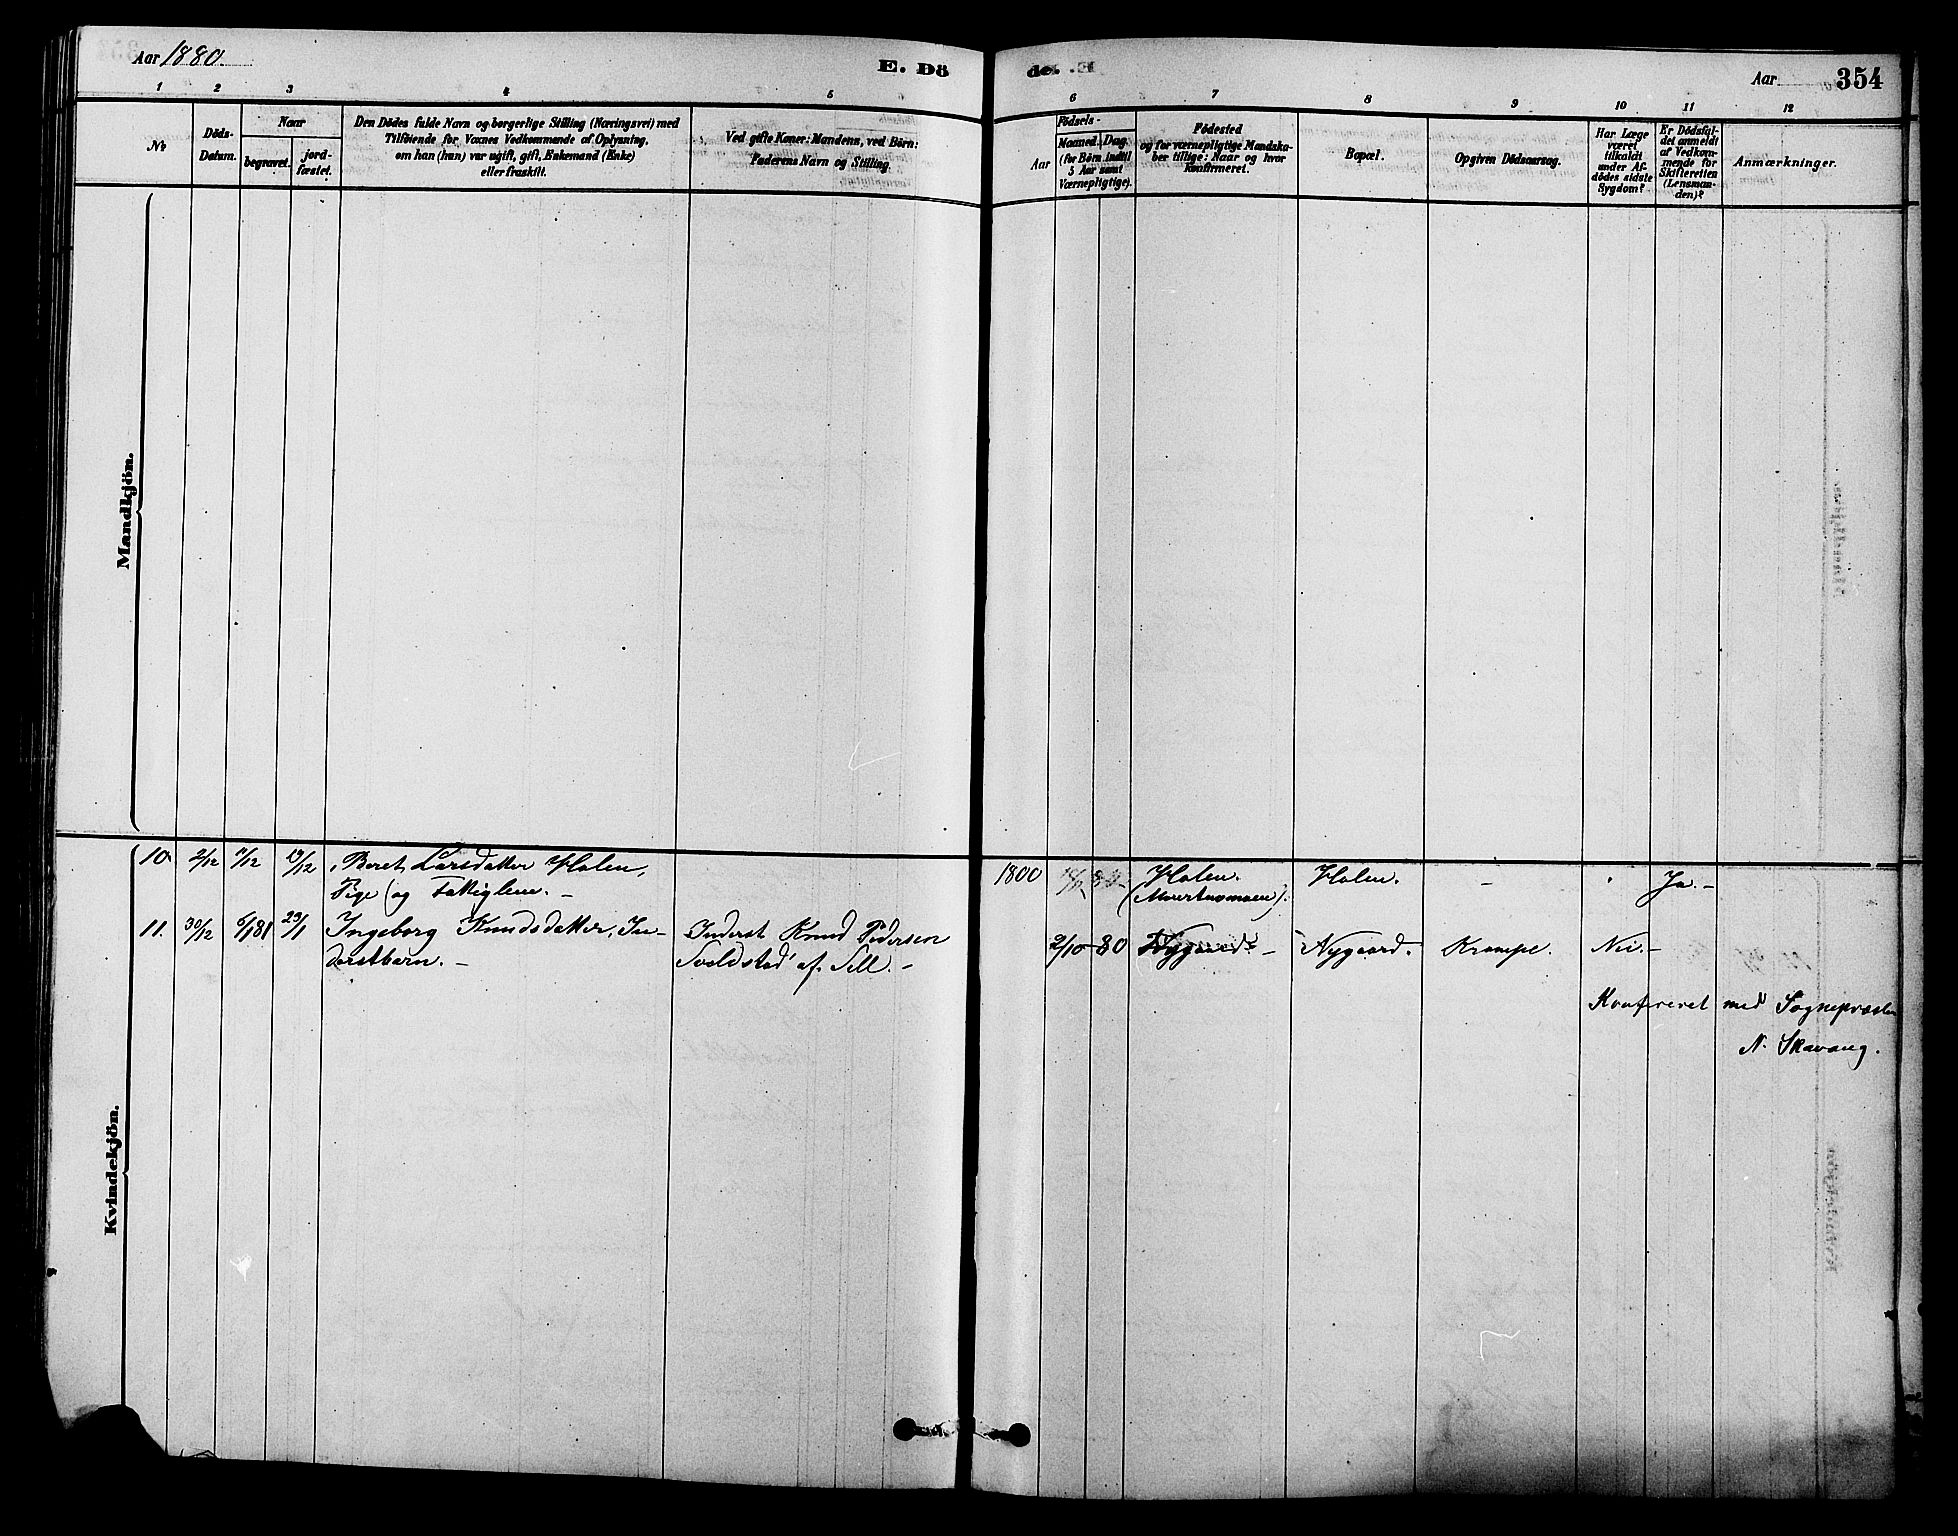 Aar 1880.
E. Dö
de.
Aar
354
1 2 3 4 5
6 7 8 9 10 11 12
No
Döds-
Datum.
Naar
begravet.
jord-
fæstet.
Den Dödes fulde Navn og borgerlige Stilling (Næringsvei) med
Tilföiende for Voxnes Vedkommende af Oplysning,
om han (hun) var ugift, gift, Enkemand (Enke)
eller fraskilt.
Ved gifte Koner: Mandens, ved Börn:
Faderens Navn og Stilling.
Födsels-
Aar
Maaned. Dag.
(for Börn indtil
5 Aar samt
Værnepligtige).
Födested
og for værnepligtige Mandska-
ber tillige: Naar og hvor
Konfirmeret.
Bopæl.
Opgiven Dödsaarsag.
Har Læge
været
tilkaldt
under Af-
dödes sidste
Sygdom?
Er Dödsfal-
det anmeldt
af Vedkom-
mende for
Skifteretten
(Lensman-
den)?
Anmærkninger.
Mandkjön.
Kvindekjön.
10. 2/12 7/12 19/12 Beret Larsdatter Holen, 1800 Holen. Holen. - Ja. -
Pige (og Fattiglem. -
11. 30/12 6/1 81 23/1 Ingeborg Knudsdatter, In- Inderst Knud Pedersen 2/10 - 80 Nygaard. - Nygaard. Krampe. Nei. -
derstbarn. - af Sell. -
Konfereret med Sognepræsten
N. Skavang.